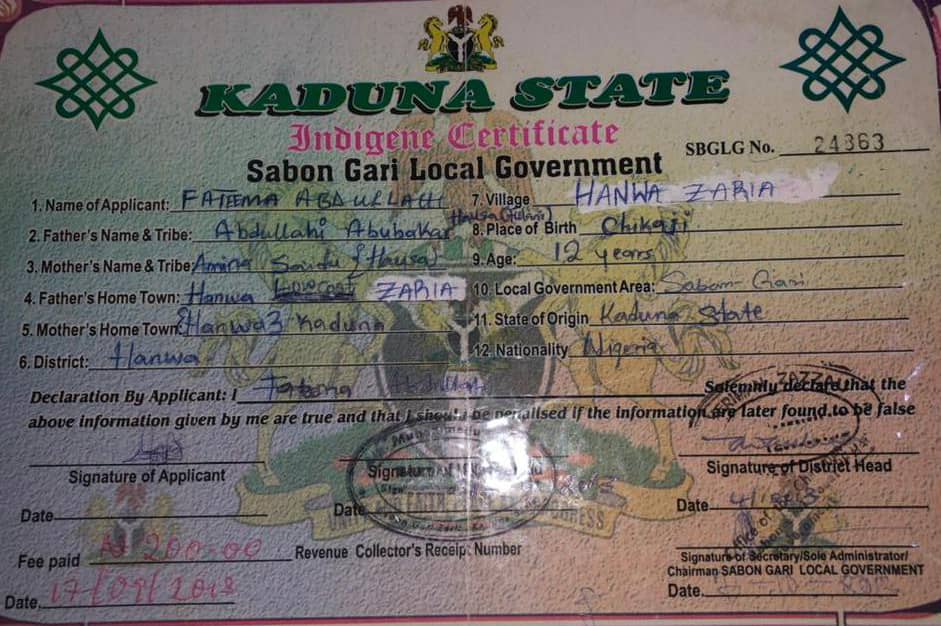 KADUNA STATE
Indigene Certificate
SBGLG No. 24363
Sabon Gari Local Government
1. Name of Applicant: FATEEMA ABDULLAHI
7. Village HANWA ZARIA
2. Father's Name & Tribe: Abdullahi Abubakar Hausa (Fulani)
8. Place of Birth Chikaji
3. Mother's Name & Tribe: Amina Saidu (Hausa)
9. Age: 12 years
4. Father's Home Town: Hanwa Lowcost ZARIA
10. Local Government Area: Sabon Gari
5. Mother's Home Town: Hanwa Kaduna
11. State of Origin Kaduna State
6. District: Hanwa
12. Nationality Nigeria
Declaration By Applicant: I Abdullahi Solemnly declare that the
above information given by me are true and that I should be penalised if the information are later found to be false
Signature of Applicant
Signature of
Signature of District Head
Date
Date
Date
Fee paid ₦ 200.00
Revenue Collector's Receipt Number
Signature of Secretary/Sole Administrator/
Chairman SABON GARI LOCAL GOVERNMENT
Date. 17/09/2018
Date.